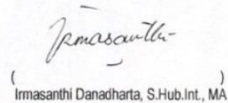 Irmasanthi
( )
Irmasanthi Danadharta, S.Hub.Int., MA